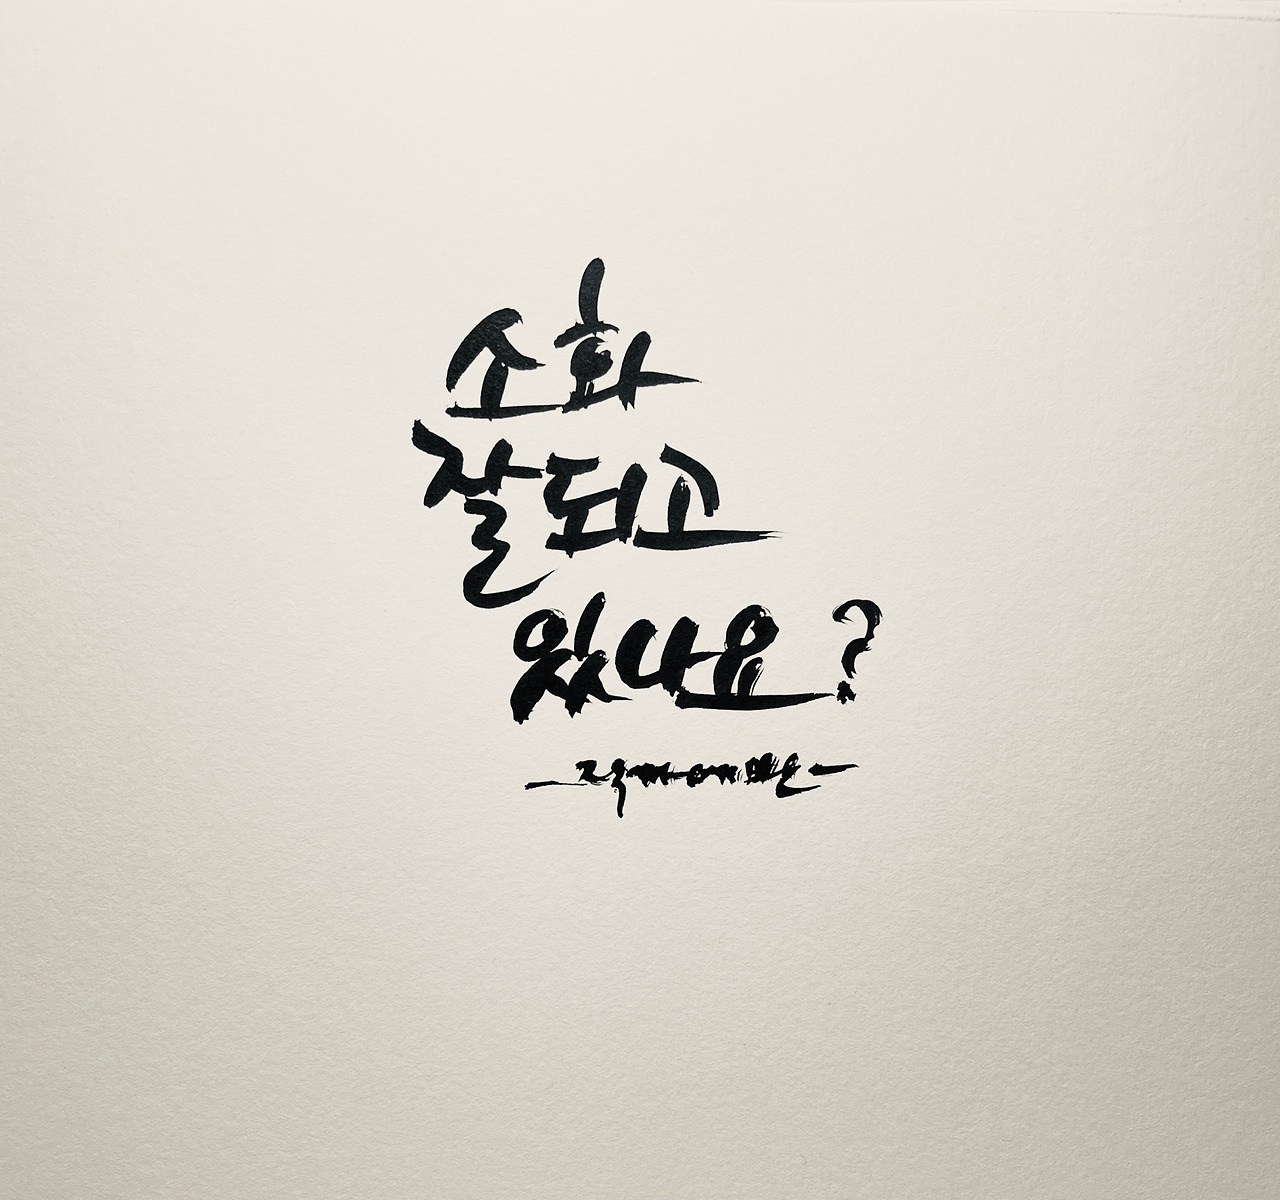 소화
잘 되고
있나요?